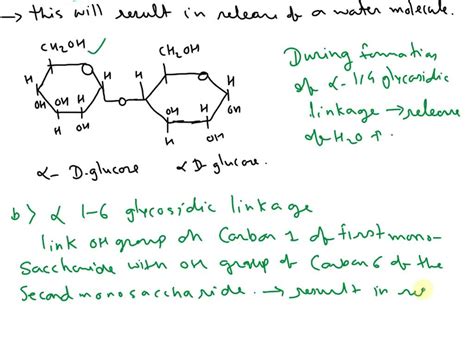 → this will result in release of a water molecule.
CH2OH ✓ CH2OH
H O H H O H
H H
OH OH H O OH H OH
H OH H OH
α- D-glucose α D-glucose.
During formation
of α-1,4 glycosidic
linkage → release
of H2O ↑.
b) α 1-6 glycosidic linkage
link OH group on Carbon 1 of first mono-
Saccharide with OH group of Carbon 6 of the
Second monosaccharide. → result in